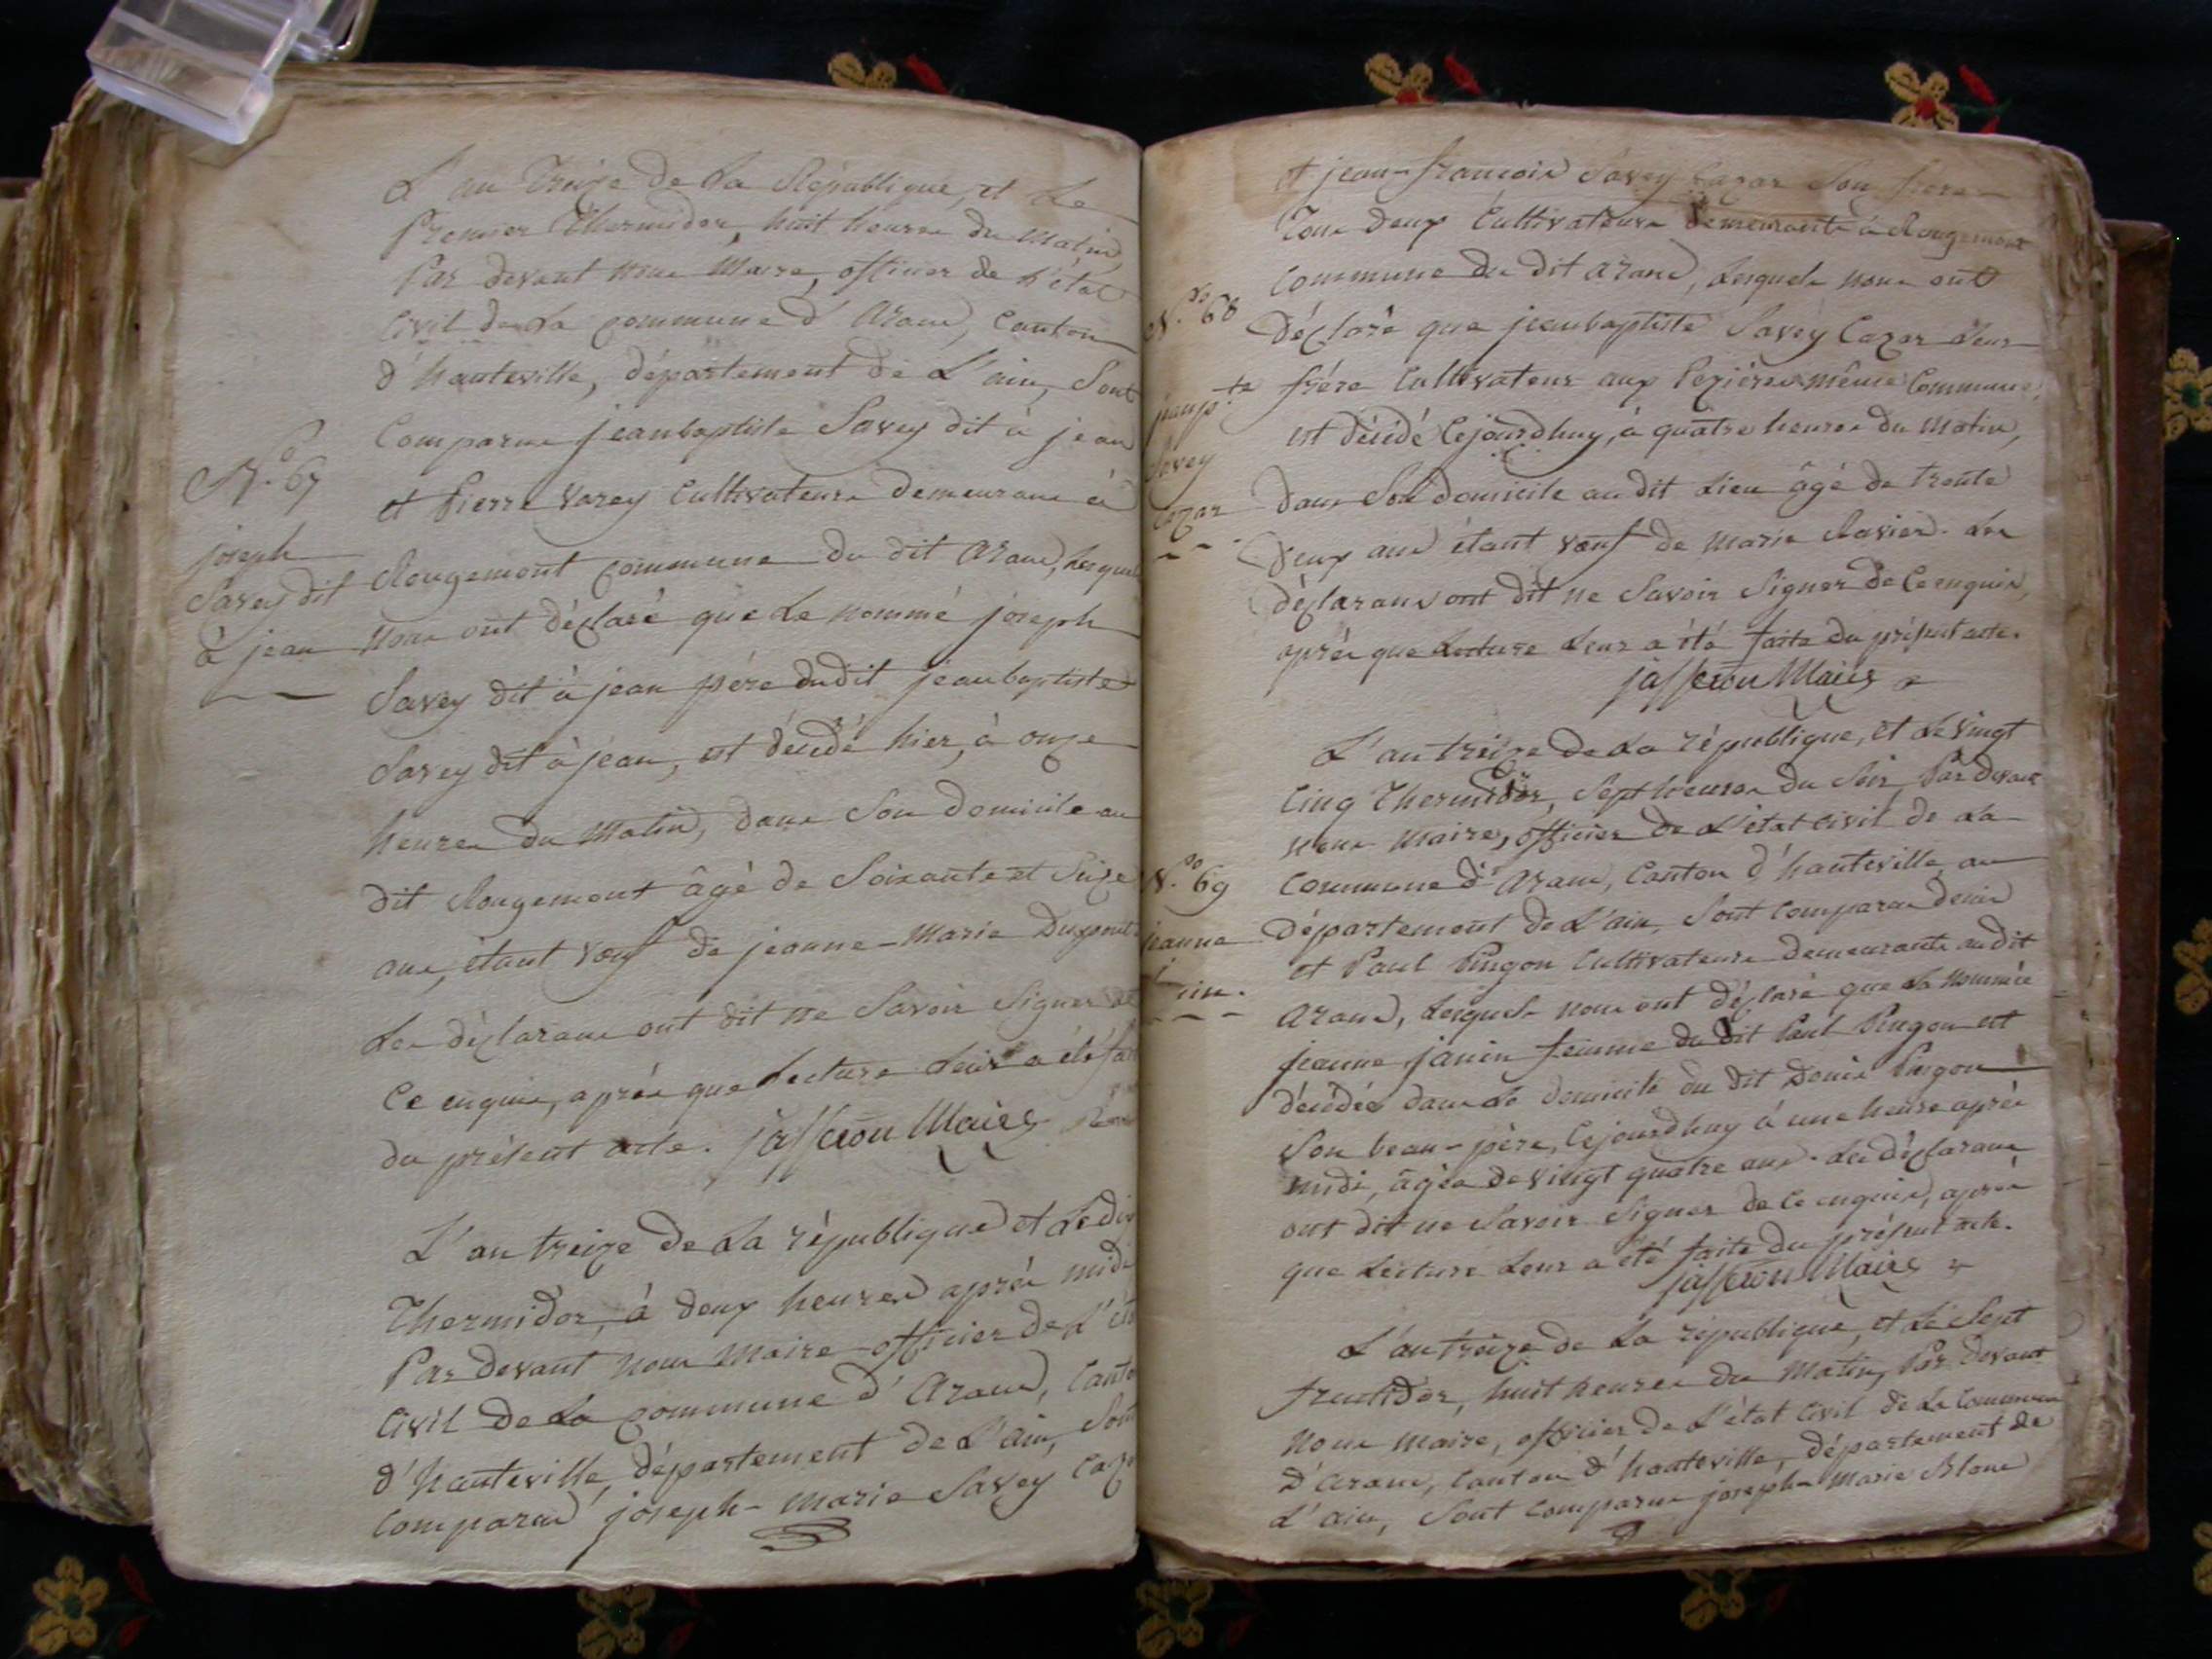 L'an treize de la République, et le
Premier Thermidor, huit heures du matin,
Par devant nous Maire, officier de l'état
Civil de la commune d'Arane, Canton
d'hauteville, département de L'ain, Sont
Comparus jeanbaptiste Savey dit à jean
N.o 67
et Pierre Varey Cultivateurs demeurans à
joseph
Savey dit
à jean
Rougemont commune du dit Arane, lesquel
nous ont déclaré que le nommé joseph
Savey dit à jean père dudit jeanbaptiste
Savey dit à jean, est décédé hier, à onze
heures du Matin, dans Son domicile au
dit Rougemont âgé de Soixante et Seize
ans, étant veuf de jeanne-Marie Dupont
Les déclarans ont dit ne Savoir Signer de
Ce enquis, après que lecture leur a été fai
du présent acte. jasseron Maire
L'an treize de la république et le dix
Thermidor, à deux heures après midi
Par devant nous Maire officier de l'éta
Civil de la commune d'Arane, Canto
d'hauteville, département de L'ain, Sont
Comparus joseph-marie Savey Caza
et jean-françois Savey Cazar Son frere
Tous deux Cultivateurs demeurants à Rougemont
commune du dit arane, lesquels nous ont
N.o 68
déclaré que jeanbaptiste Savey Cazar leur
jeanp.te
Savey
Cazar
frére Cultivateur aux même Commune,
est décédé Cejourdhuy, à quatre heures du Matin,
dans Son domicile au dit Lieu âgé de trente
deux ans étant veuf de marie Ravier. Les
déclarans ont dit ne Savoir Signer de Ce enquis,
après que Lecture Leur a été faite du présent acte.
jasseron Maire
L'an treize de La république, et Le vingt
Cinq Thermidor, Sept heures du Soir, Par devant
nous Maire, officier de L'état civil de La
N.o 69
Commune d'Arane, Canton d'hauteville, au
jeanne
département de L'ain, Sont Comparus denis
et Paul Pingon Cultivateurs demeurants audit
Arane, Lesquels nous ont déclaré que La nommée
jeanne janin femme du dit Paul Pingon est
décédée dans Le domicile du dit Denis Pingon
Son beau-père, Cejourdhuy à une heure après
midi, âgée de vingt quatre ans. Les déclarans
ont dit ne Savoir Signer de Ce enquis, après
que Lecture Leur a été faite du présent acte.
jasseron Maire
L'an treize de La république, et Le Sept
fructidor, huit heures du Matin, Par devant
Nous Maire, officier de L'état Civil de La Commune
d'Arane, Canton d'hauteville, département de
L'ain, Sont Comparus joseph-Marie Blanc